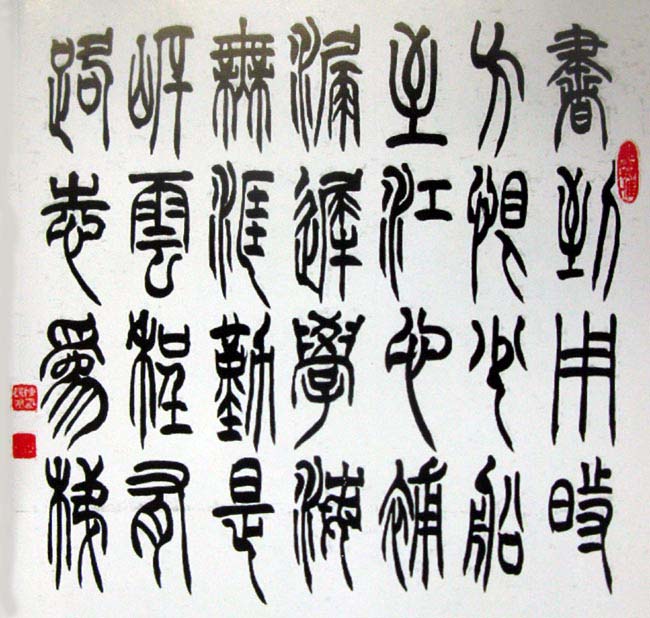 書到用時
方恨少船
至江心補
漏遲學海
無涯勤是
岸雲程有
路志為梯